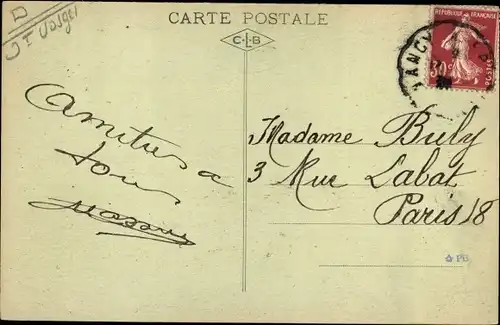 D
I Vosges
CARTE POSTALE
CLB
REPUBLIQUE FRANÇAISE
30c
POSTES
NANCY
Amitiés à
tous
Madame Buly
3 Rue Labat
Paris 18
PB